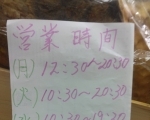 営業時間
(月) 12:30~20:30
(火) 10:30~20:30
(水) 10:30~19:30